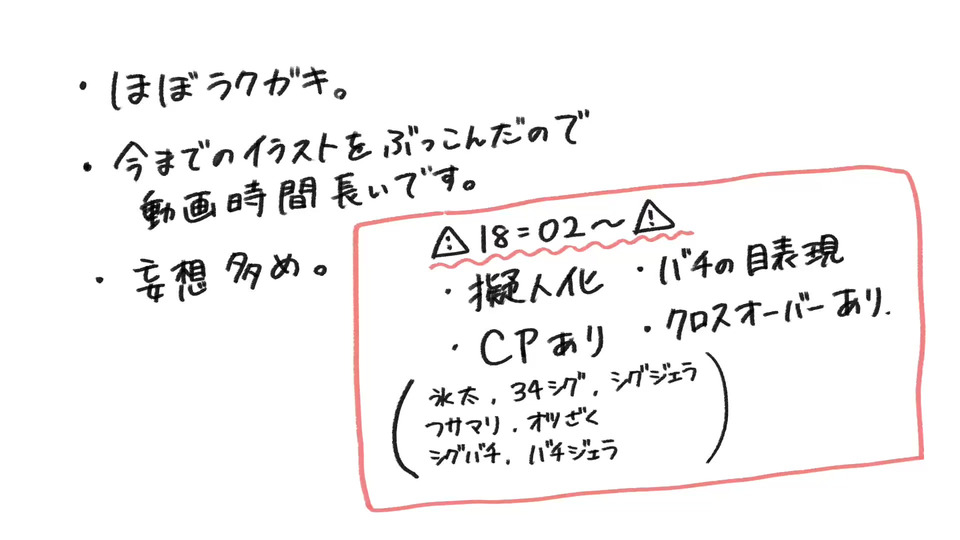 ・ほぼラクガキ。
・今までのイラストをぶっこんだので
動画時間長いです。
・妄想多め。
⚠18:02〜⚠
・擬人化 ・バチの目表現
・CPあり ・クロスオーバーあり.
(氷太, 34シグ, シグジェラ
フサマリ, オツざく
シグバチ, バチジェラ)